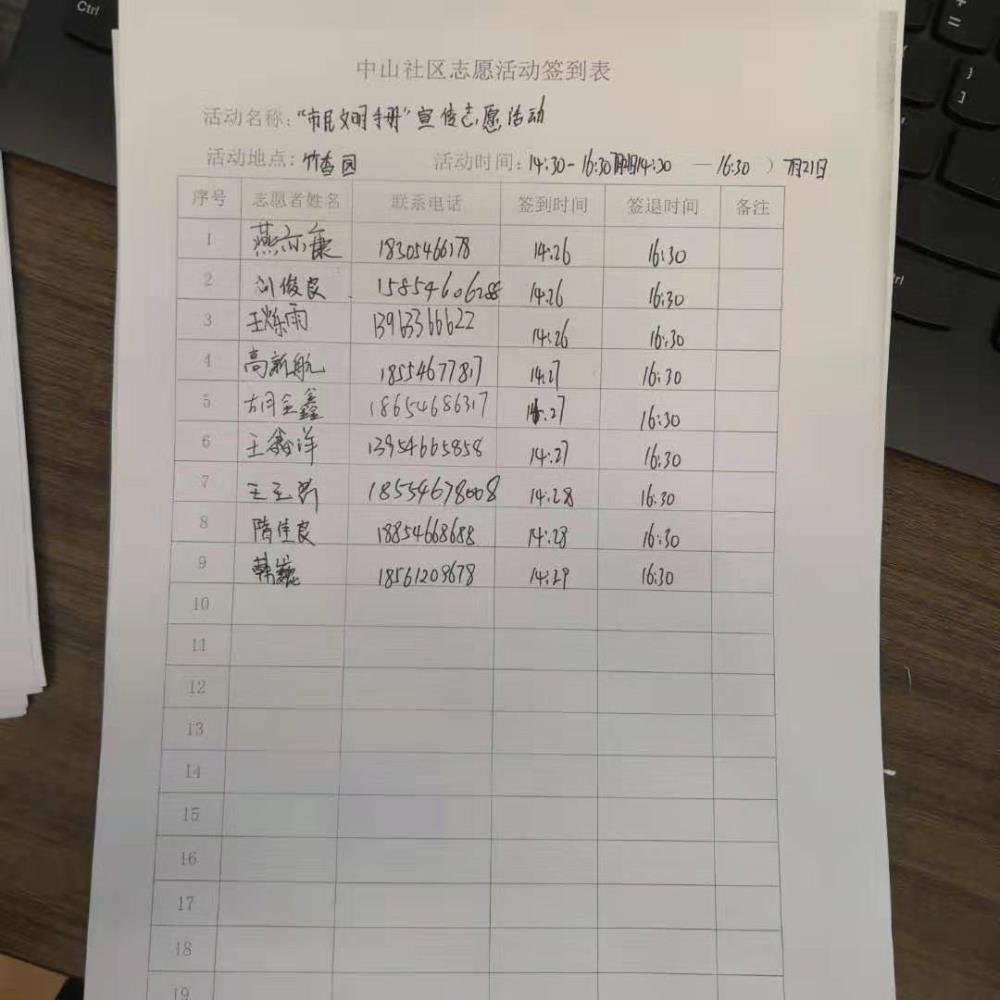 Ctrl
中山社区志愿活动签到表
活动名称："市民文明手册"宣传志愿活动
活动地点：竹香园 活动时间：14:30-16:30 14:30 — 16:30 ） 7月21日
序号 志愿者姓名 联系电话 签到时间 签退时间 备注
1 燕亦康 18305466178 14:26 16:30
2 刘俊良 15854606288 14:26 16:30
3 王烁雨 13963366622 14:26 16:30
4 高新航 18554677817 14:27 16:30
5 胡全鑫 18654686317 14:27 16:30
6 王鑫洋 13954665858 14:27 16:30
7 王玉 18554678008 14:28 16:30
8 隋佳良 18854668688 14:28 16:30
9 韩 18561209678 14:29 16:30
10
11
12
13
14
15
16
17
18
19